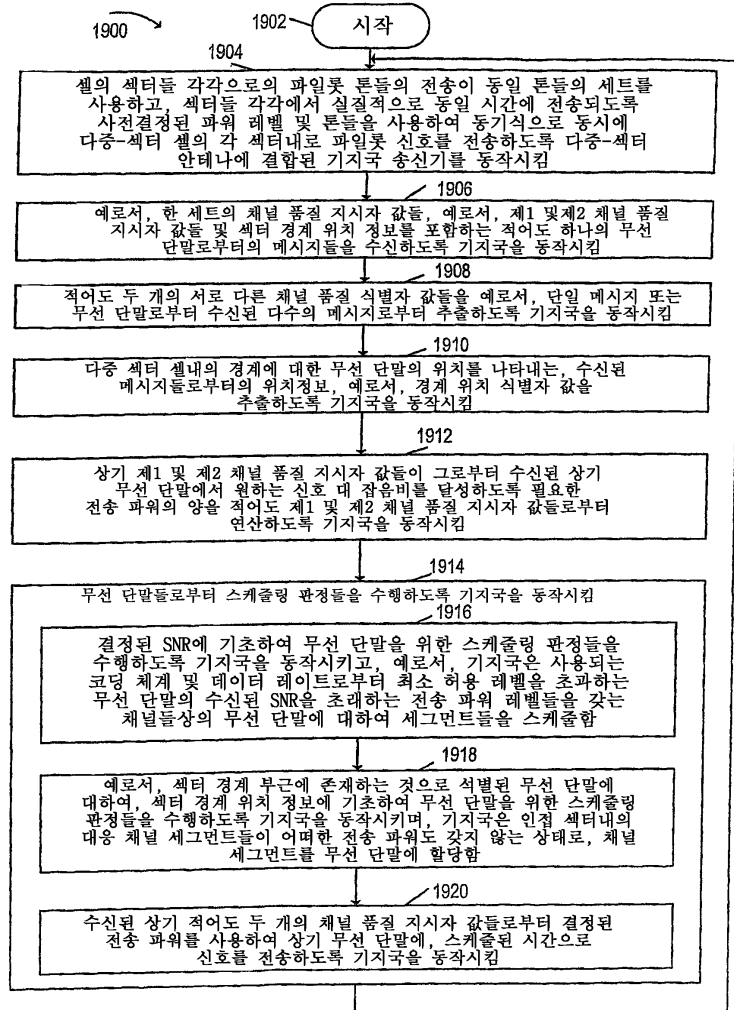 1900
1902
시작
1904
셀의 섹터들 각각으로의 파일롯 톤들의 전송이 동일 톤들의 세트를
사용하고, 섹터들 각각에서 실질적으로 동일 시간에 전송되도록
사전결정된 파워 레벨 및 톤들을 사용하여 동기식으로 동시에
다중-섹터 셀의 각 섹터내로 파일롯 신호를 전송하도록 다중-섹터
안테나에 결합된 기지국 송신기를 동작시킴
1906
예로서, 한 세트의 채널 품질 지시자 값들, 예로서, 제1 및제2 채널 품질
지시자 값들 및 섹터 경계 위치 정보를 포함하는 적어도 하나의 무선
단말로부터의 메시지들을 수신하도록 기지국을 동작시킴
1908
적어도 두 개의 서로 다른 채널 품질 식별자 값들을 예로서, 단일 메시지 또는
무선 단말로부터 수신된 다수의 메시지로부터 추출하도록 기지국을 동작시킴
1910
다중 섹터 셀내의 경계에 대한 무선 단말의 위치를 나타내는, 수신된
메시지들로부터의 위치정보, 예로서, 경계 위치 식별자 값을
추출하도록 기지국을 동작시킴
1912
상기 제1 및 제2 채널 품질 지시자 값들이 그로부터 수신된 상기
무선 단말에서 원하는 신호 대 잡음비를 달성하도록 필요한
전송 파워의 양을 적어도 제1 및 제2 채널 품질 지시자 값들로부터
연산하도록 기지국을 동작시킴
1914
무선 단말들로부터 스케줄링 판정들을 수행하도록 기지국을 동작시킴
1916
결정된 SNR에 기초하여 무선 단말을 위한 스케줄링 판정들을
수행하도록 기지국을 동작시키고, 예로서, 기지국은 사용되는
코딩 체계 및 데이터 레이트로부터 최소 허용 레벨을 초과하는
무선 단말의 수신된 SNR을 초래하는 전송 파워 레벨들을 갖는
채널들상의 무선 단말에 대하여 세그먼트들을 스케줄함
1918
예로서, 섹터 경계 부근에 존재하는 것으로 석별된 무선 단말에
대하여, 섹터 경계 위치 정보에 기초하여 무선 단말을 위한 스케줄링
판정들을 수행하도록 기지국을 동작시키며, 기지국은 인접 섹터내의
대응 채널 세그먼트들이 어떠한 전송 파워도 갖지 않는 상태로, 채널
세그먼트를 무선 단말에 할당함
1920
수신된 상기 적어도 두 개의 채널 품질 지시자 값들로부터 결정된
전송 파워를 사용하여 상기 무선 단말에, 스케줄된 시간으로
신호를 전송하도록 기지국을 동작시킴